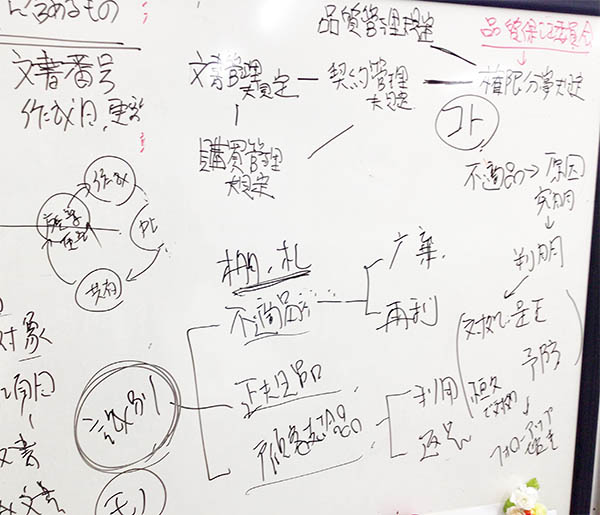 にあるもの
文書番号
作成日,更新
作成
共有
対象
項目
文書
文書
モノ
品質管理規定
品質保証委員会
文書管理規定
契約管理規定
権限分掌規定
購買管理規定
コト
不適品→原因究明
判明
対処・是正
予防
恒久対策
フォローアップ
棚・札
不適品
廃棄
再利
識別
正規品
顧客支給品
利用
返品